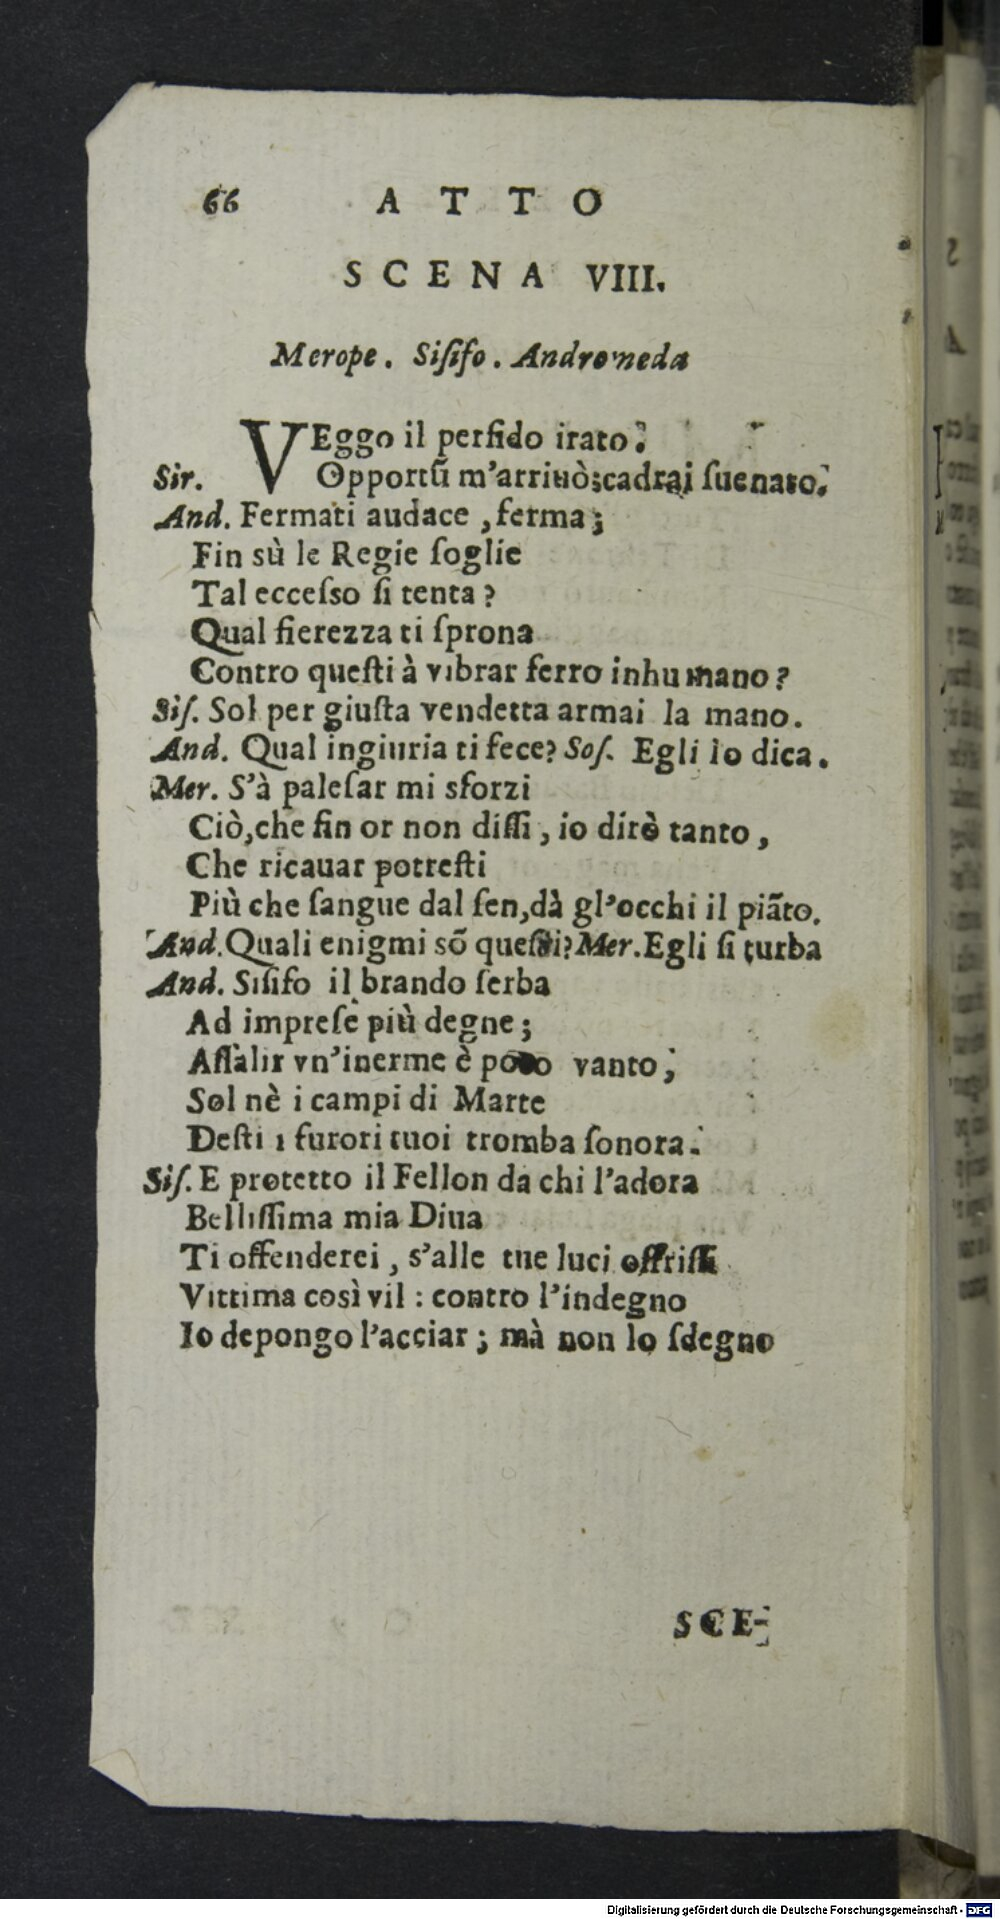 66 ATTO
SCENA VIII.
Merope. Siſifo. Andromeda
VEggo il perfido irato.
Sir. Opportũ m'arriuò; cadrai ſuenato.
And. Fermati audace, ferma;
Fin sù le Regie ſoglie
Tal ecceſso ſi tenta?
Qual fierezza ti ſprona
Contro queſti à vibrar ferro inhumano?
Siſ. Sol per giuſta vendetta armai la mano.
And. Qual ingiuria ti fece? Soſ. Egli lo dica.
Mer. S'à paleſar mi sforzi
Ciò, che fin or non diſſi, io dirò tanto,
Che ricauar potreſti
Più che ſangue dal ſen, dà gl'occhi il piãto.
And. Quali enigmi sõ queſti? Mer. Egli ſi turba
And. Siſifo il brando ſerba
Ad impreſe più degne;
Aſſalir vn'inerme è poco vanto;
Sol nè i campi di Marte
Deſti i furori tuoi tromba ſonora.
Siſ. E protetto il Fellon da chi l'adora
Belliſſima mia Diua
Ti offenderei, s'alle tue luci offriſſi
Vittima così vil: contro l'indegno
Io depongo l'acciar; mà non lo ſdegno
SCE-
Digitalisierung gefördert durch die Deutsche Forschungsgemeinschaft - DFG